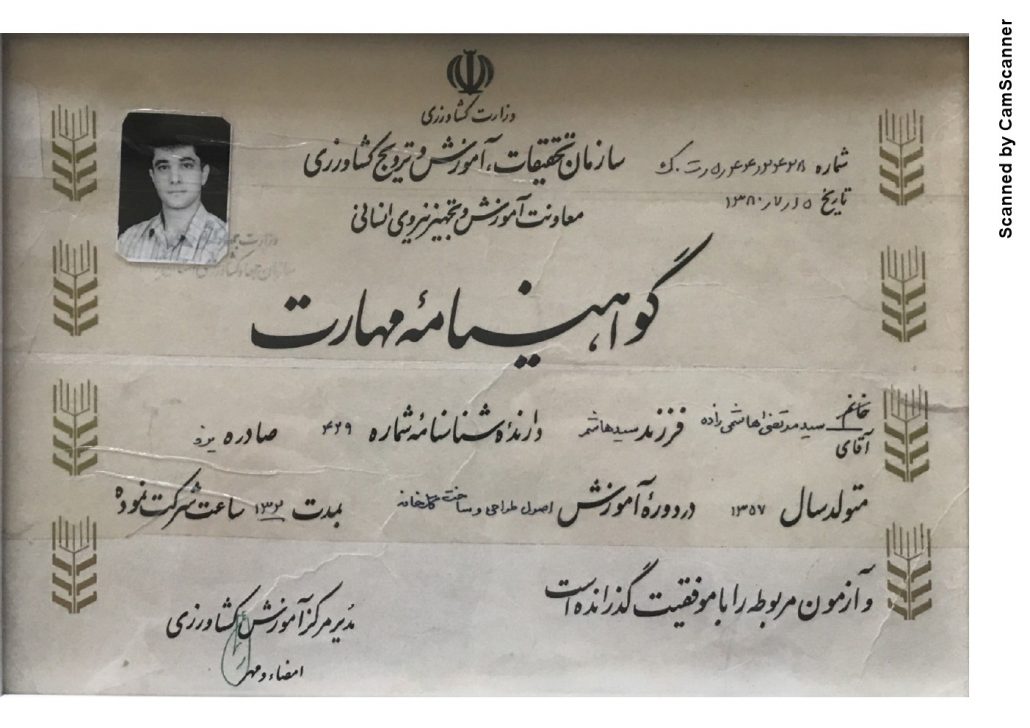 وزارت کشاورزی
سازمان تحقیقات، آموزش و ترویج کشاورزی
معاونت آموزش و تجهیز نیروی انسانی
شماره
تاریخ ۱۳۸۰/۷/۱۵
وزارت جهاد
سازمان جهاد کشاورزی استان
گواهینامهٔ مهارت
خانم
آقای سید مرتضی هاشمی زاده فرزند سید هاشم دارندهٔ شناسنامهٔ شماره ۴۲۹ صادره یزد
متولد سال ۱۳۵۷ در دورهٔ آموزش اصول طراحی و ساخت گلخانه بمدت ۱۳۲ ساعت شرکت نموده
و آزمون مربوطه را با موفقیت گذرانده است
مدیر مرکز آموزش کشاورزی
امضاء و مهر
Scanned by CamScanner